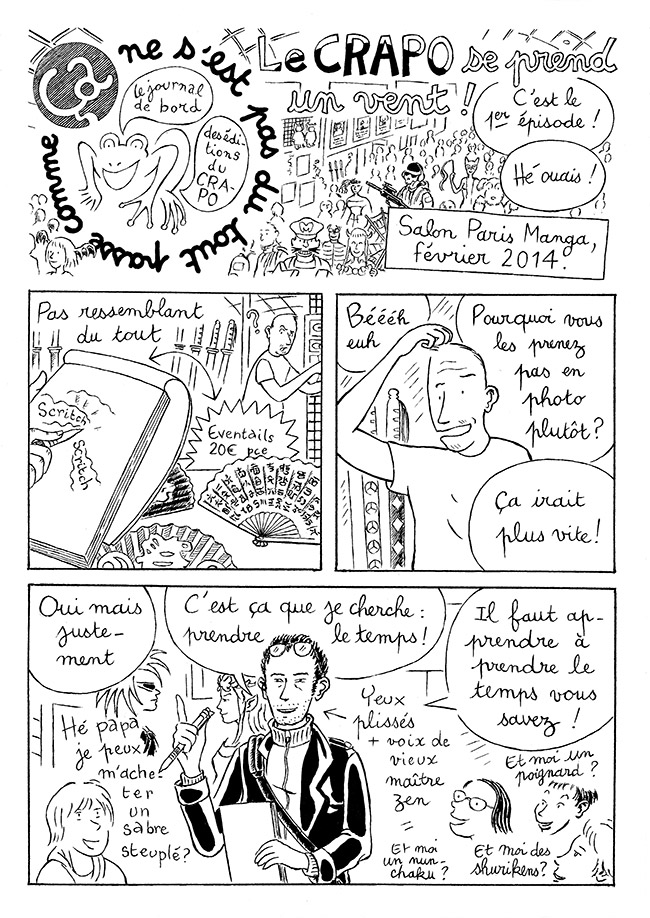 Ça
ne s'est pas du tout passé comme
le journal
de bord
des édi-
tions
du
CRA-
PO
Le CRAPO se prend
un vent !
C'est le
1er épisode !
Hé ouais !
Salon Paris Manga,
février 2014.
Pas ressemblant
du tout
?
Scritch
Scritch
Eventails
20€ pce
Béééh
euh
Pourquoi vous
les prenez
pas en
photo
plutôt ?
Ça irait
plus vite !
Oui mais
juste-
ment
C'est ça que je cherche :
prendre le temps !
Il faut ap-
prendre à
prendre le
temps vous
savez !
Hé papa
je peux
m'ache-
ter
un
sabre
steuplé ?
Yeux
plissés
+ voix de
vieux
maître
zen
Et moi un
poignard ?
Et moi
un nun-
chaku ?
Et moi des
shurikens ?